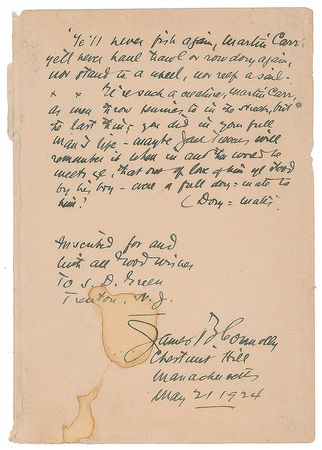 "Ye'll never fish again, Martin Carr
ye'll never haul trawl or row dory again,
nor stand to a wheel, nor reef a sail.
x x Ye're such a creature, Martin Carr,
as men throw pennies to in the streets, but
the last thing you did in your full
man's life - maybe Jack Teevens will
remember it when in another world to
meets ye. That out of love of him ye stood
by his boy - were a full dory-mate to
him."
(Dory-mates)
Inscribed for and
with all good wishes
To S. D. Green
Trenton, N.J.
James B Connolly
Chestnut Hill
Massachusetts
May 21 1924